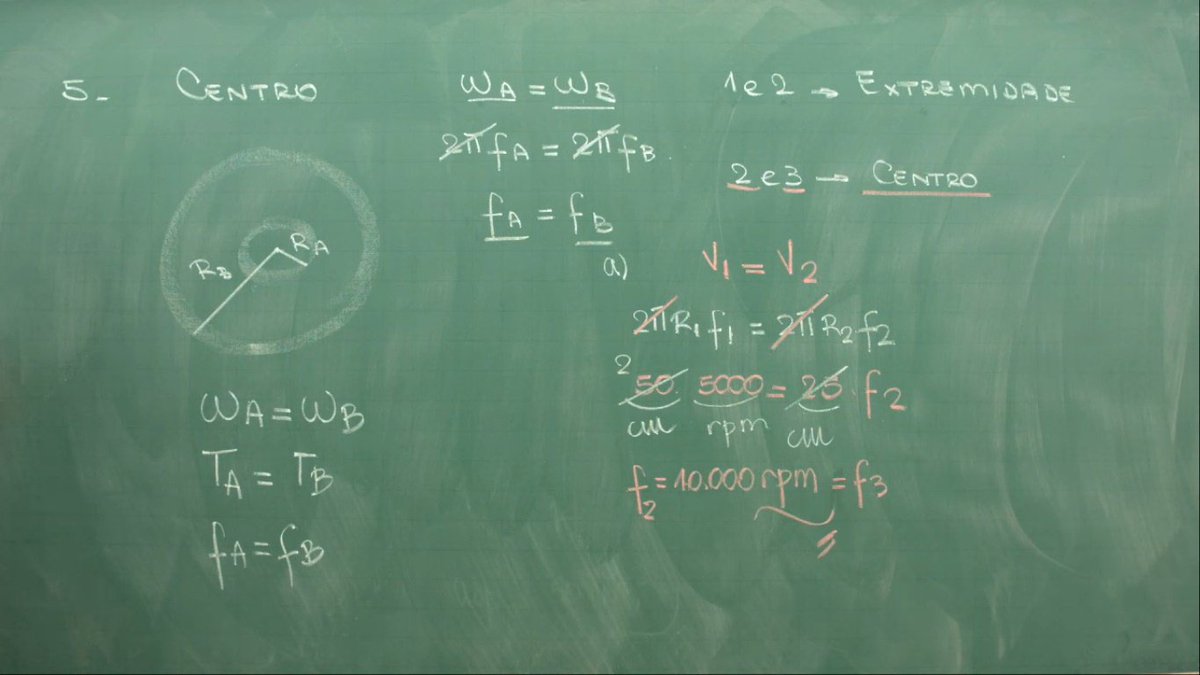 5- CENTRO
R_A
R_B
ω_A = ω_B
T_A = T_B
f_A = f_B
ω_A = ω_B
2π f_A = 2π f_B
f_A = f_B
1 e 2 → EXTREMIDADE
2 e 3 → CENTRO
a) V_1 = V_2
2π R_1 f_1 = 2π R_2 f_2
2 50 . 5000 = 25 . f_2
cm rpm cm
f_2 = 10.000 rpm = f_3